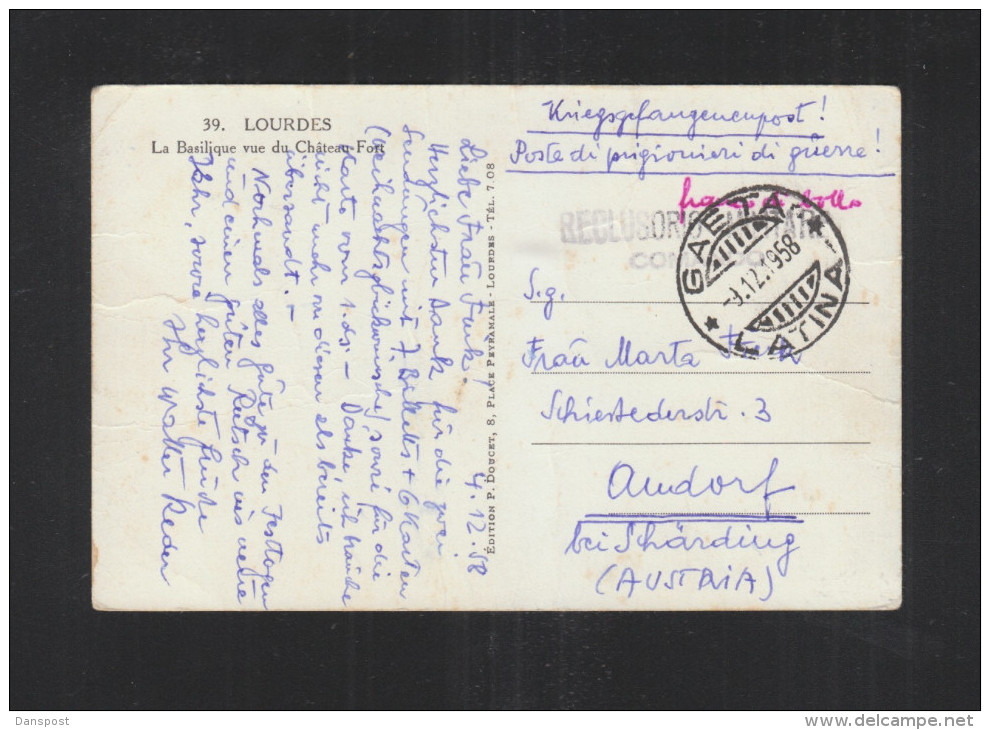 39. LOURDES
La Basilique vue du Château-Fort
4.12.58
Liebe Frau Funk!
Herzlichsten Dank für die zwei
Sendungen mit 7 Billetts + 6 Karten
(Weihnachtsglückwunsche) sowie für die
Karte vom 1. ds. – Danke, ich brauche
nicht mehr an diesen als bereits
übersandt. –
Nochmals alles Gute zu den Festtagen
und einen guten Rutsch ins neue
Jahr, sowie herzlichste Grüße
Ihr Walter Reder
ÉDITION P. DOUCET, 8, PLACE PEYRAMALE - LOURDES - TÉL. 7.08
Kriegsgefangenenpost!
Poste di prigionieri di guerre!
franco di bollo
RECLUSORIO MILITARE
GAETA
-9.12.1958
LATINA
S.g.
Frau Marta Funk
Schiestederstr. 3
Andorf
bei Schärding
(AUSTRIA)
Danspost
http://www.delcampe.net